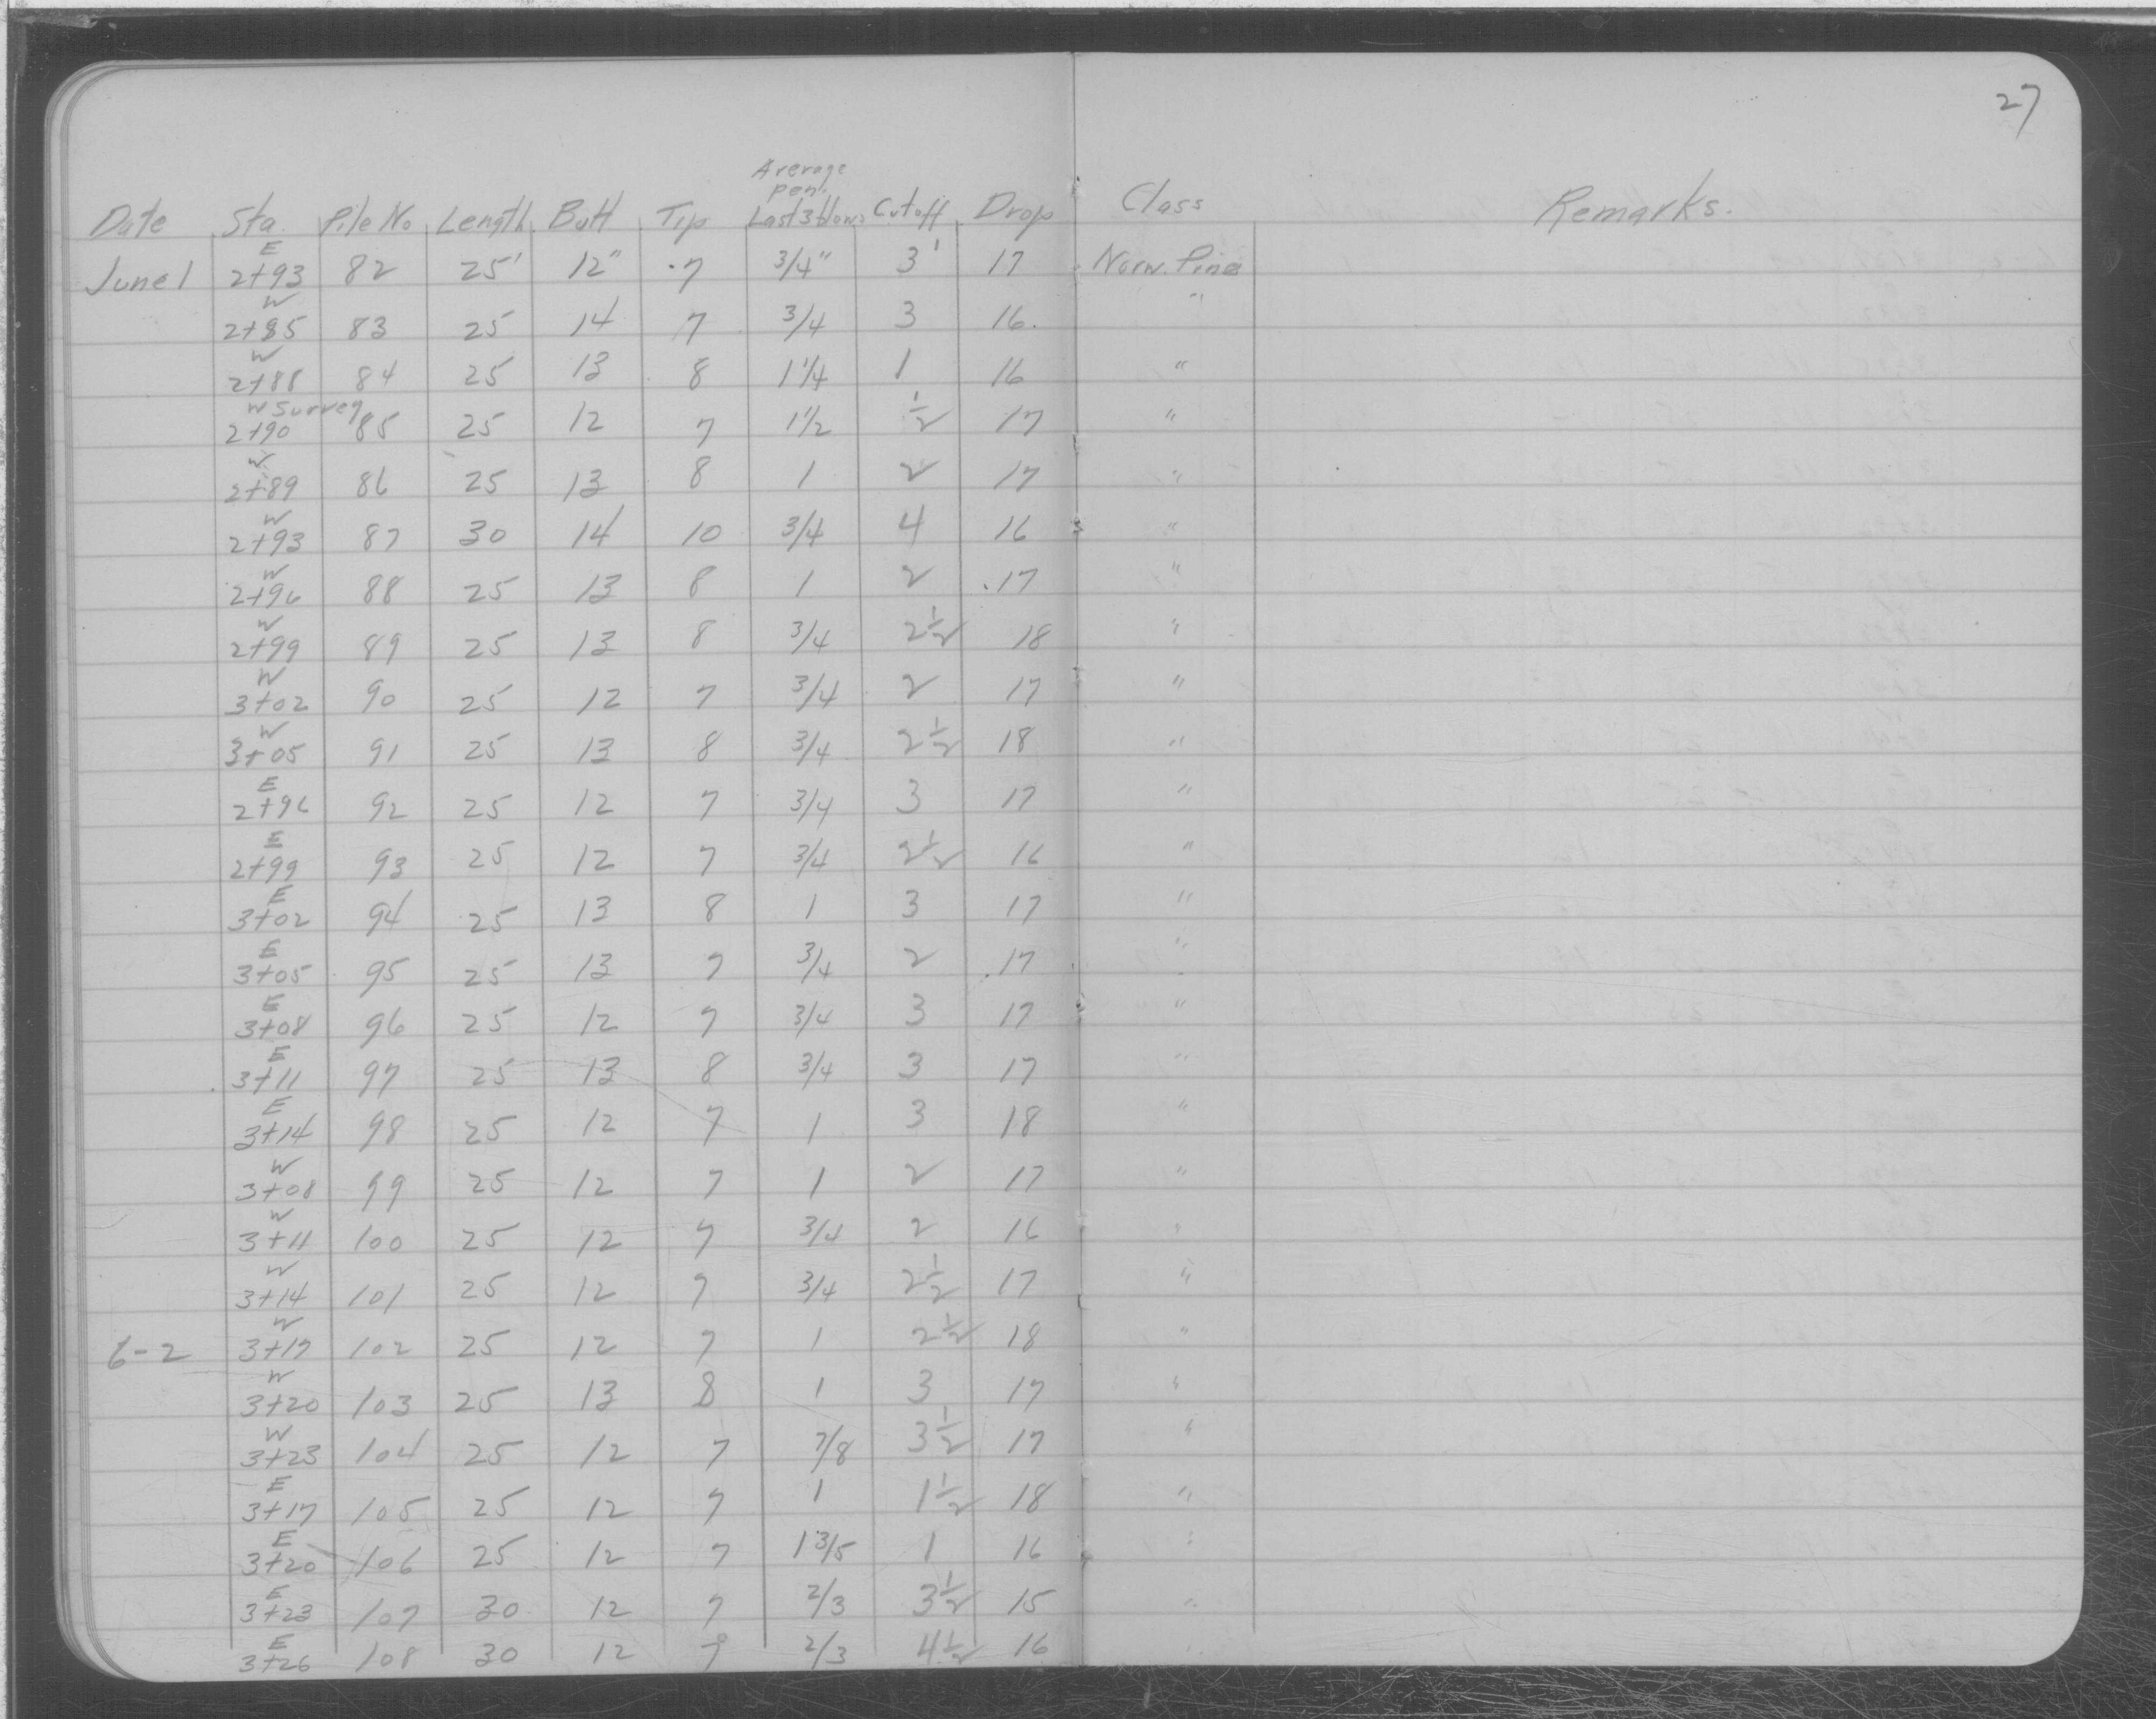 27
Average
pen.
Date Sta. Pile No Length Butt Tip Last 3 blows Cutoff Drop Class Remarks.
E
June 1 2+93 82 25' 12" 7 3/4" 3' 17 Norw. Pine
W
2+85 83 25 14 7 3/4 3 16 "
W
2+88 84 25 13 8 1 1/4 1 16 "
W Survey
2+90 85 25 12 7 1 1/2 1/2 17 "
W
2+89 86 25 13 8 1 2 17 "
W
2+93 87 30 14 10 3/4 4 16 "
W
2+96 88 25 13 8 1 2 17 "
W
2+99 89 25 13 8 3/4 2 1/2 18 "
W
3+02 90 25 12 7 3/4 2 17 "
W
3+05 91 25 13 8 3/4 2 1/2 18 "
E
2+96 92 25 12 7 3/4 3 17 "
E
2+99 93 25 12 7 3/4 2 1/2 16 "
E
3+02 94 25 13 8 1 3 17 "
E
3+05 95 25 13 7 3/4 2 17 "
E
3+08 96 25 12 7 3/4 3 17 "
E
3+11 97 25 13 8 3/4 3 17 "
E
3+14 98 25 12 7 1 3 18 "
W
3+08 99 25 12 7 1 2 17 "
W
3+11 100 25 12 7 3/4 2 16 "
W
3+14 101 25 12 7 3/4 2 1/2 17 "
W
6-2 3+17 102 25 12 7 1 2 1/2 18 "
W
3+20 103 25 13 8 1 3 17 "
W
3+23 104 25 12 7 7/8 3 1/2 17 "
E
3+17 105 25 12 7 1 1 1/2 18 "
E
3+20 106 25 12 7 1 3/5 1 16 "
E
3+23 107 30 12 7 2/3 3 1/2 15 "
E
3+26 108 30 12 7 2/3 4 1/2 16 "